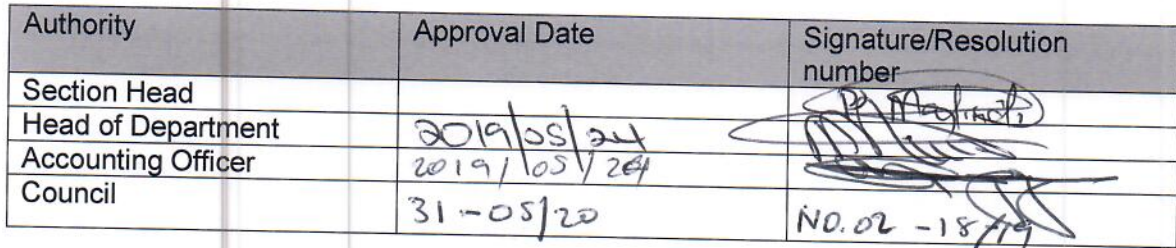 Authority Approval Date Signature/Resolution number
Section Head
Head of Department 2019/05/24
Accounting Officer 2019/05/24
Council 31-05/20 NO.02 -18/19